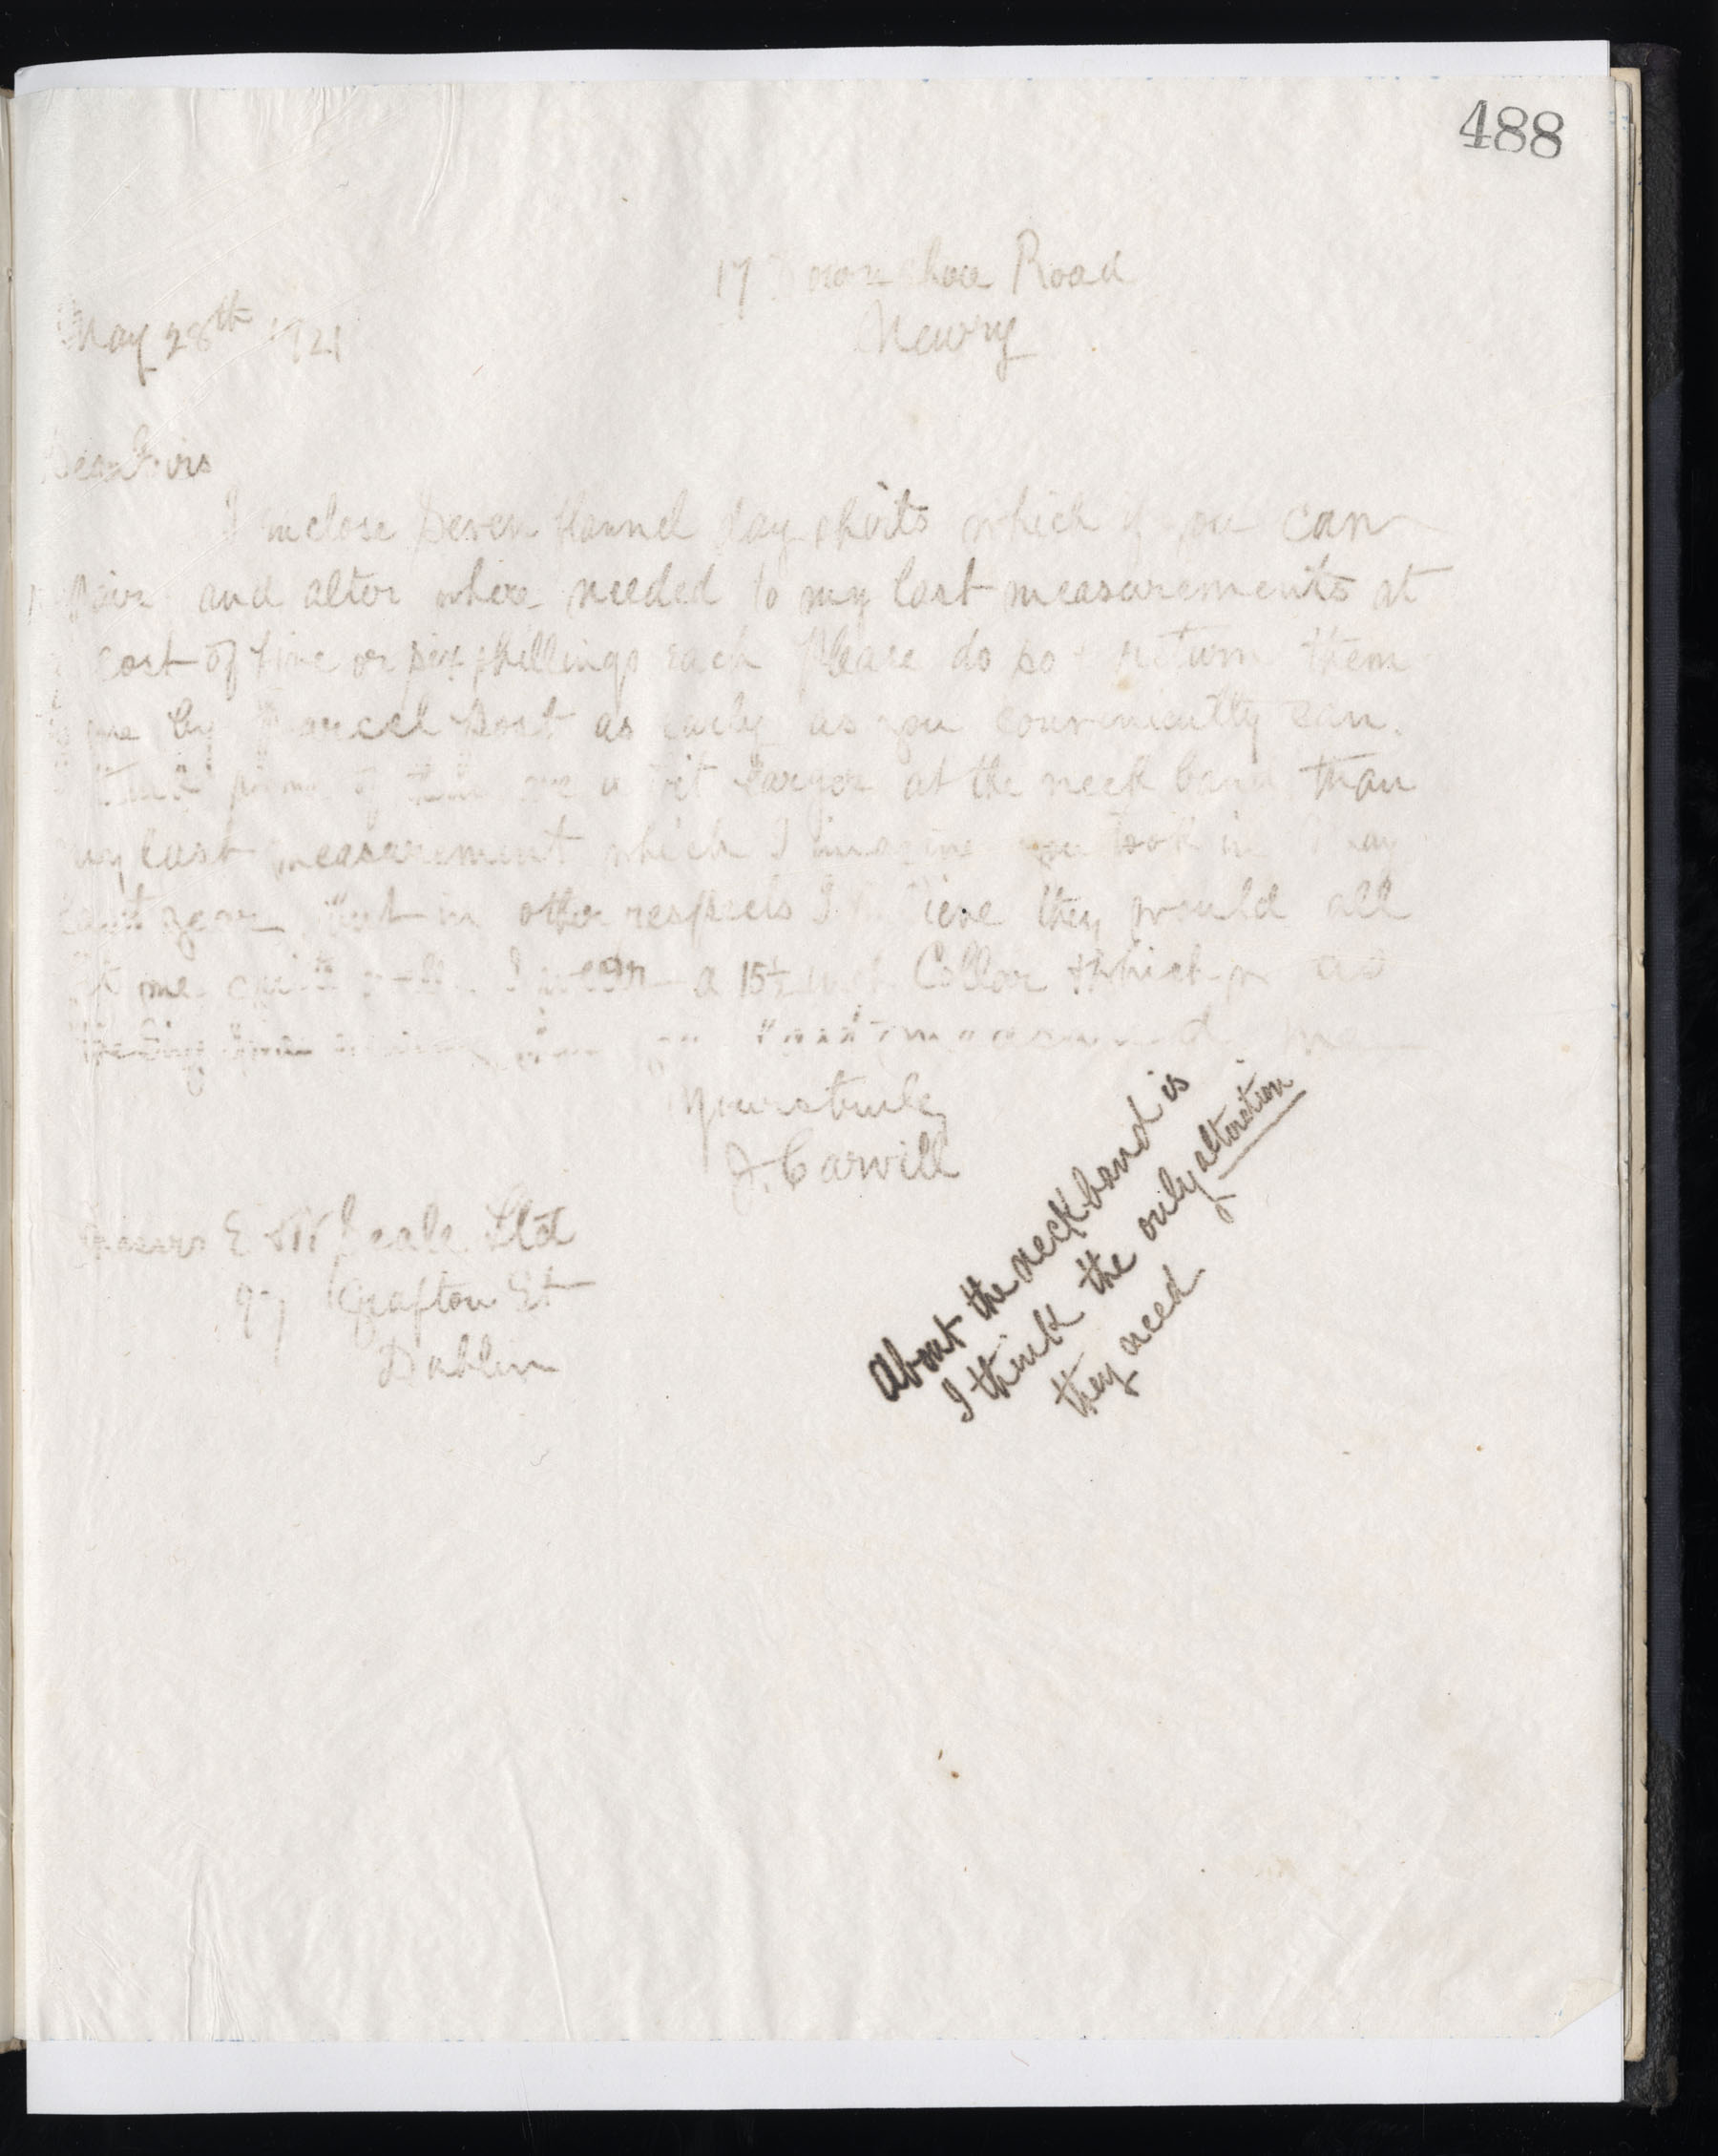 488
17 Downshire Road
Newry
May 28th 1921
Dear Sirs
I inclose seven flannel day shirts which if you can
and alter where needed to my last measurements at
cost of five or six shillings each Please do so & return them
me by parcel post as early as you conveniently can.
I think some of them are a bit larger at the neck band than
my last measurement which I imagine you took in May
last year But in other respects I believe they would all
fit me quite well. I wear a 15½ inch Collar which as
measured me
Yours truly
J. Carvill
Messrs E & W Seale Ltd
Grafton St
Dublin
About the neckband is
I think the only alteration
they need